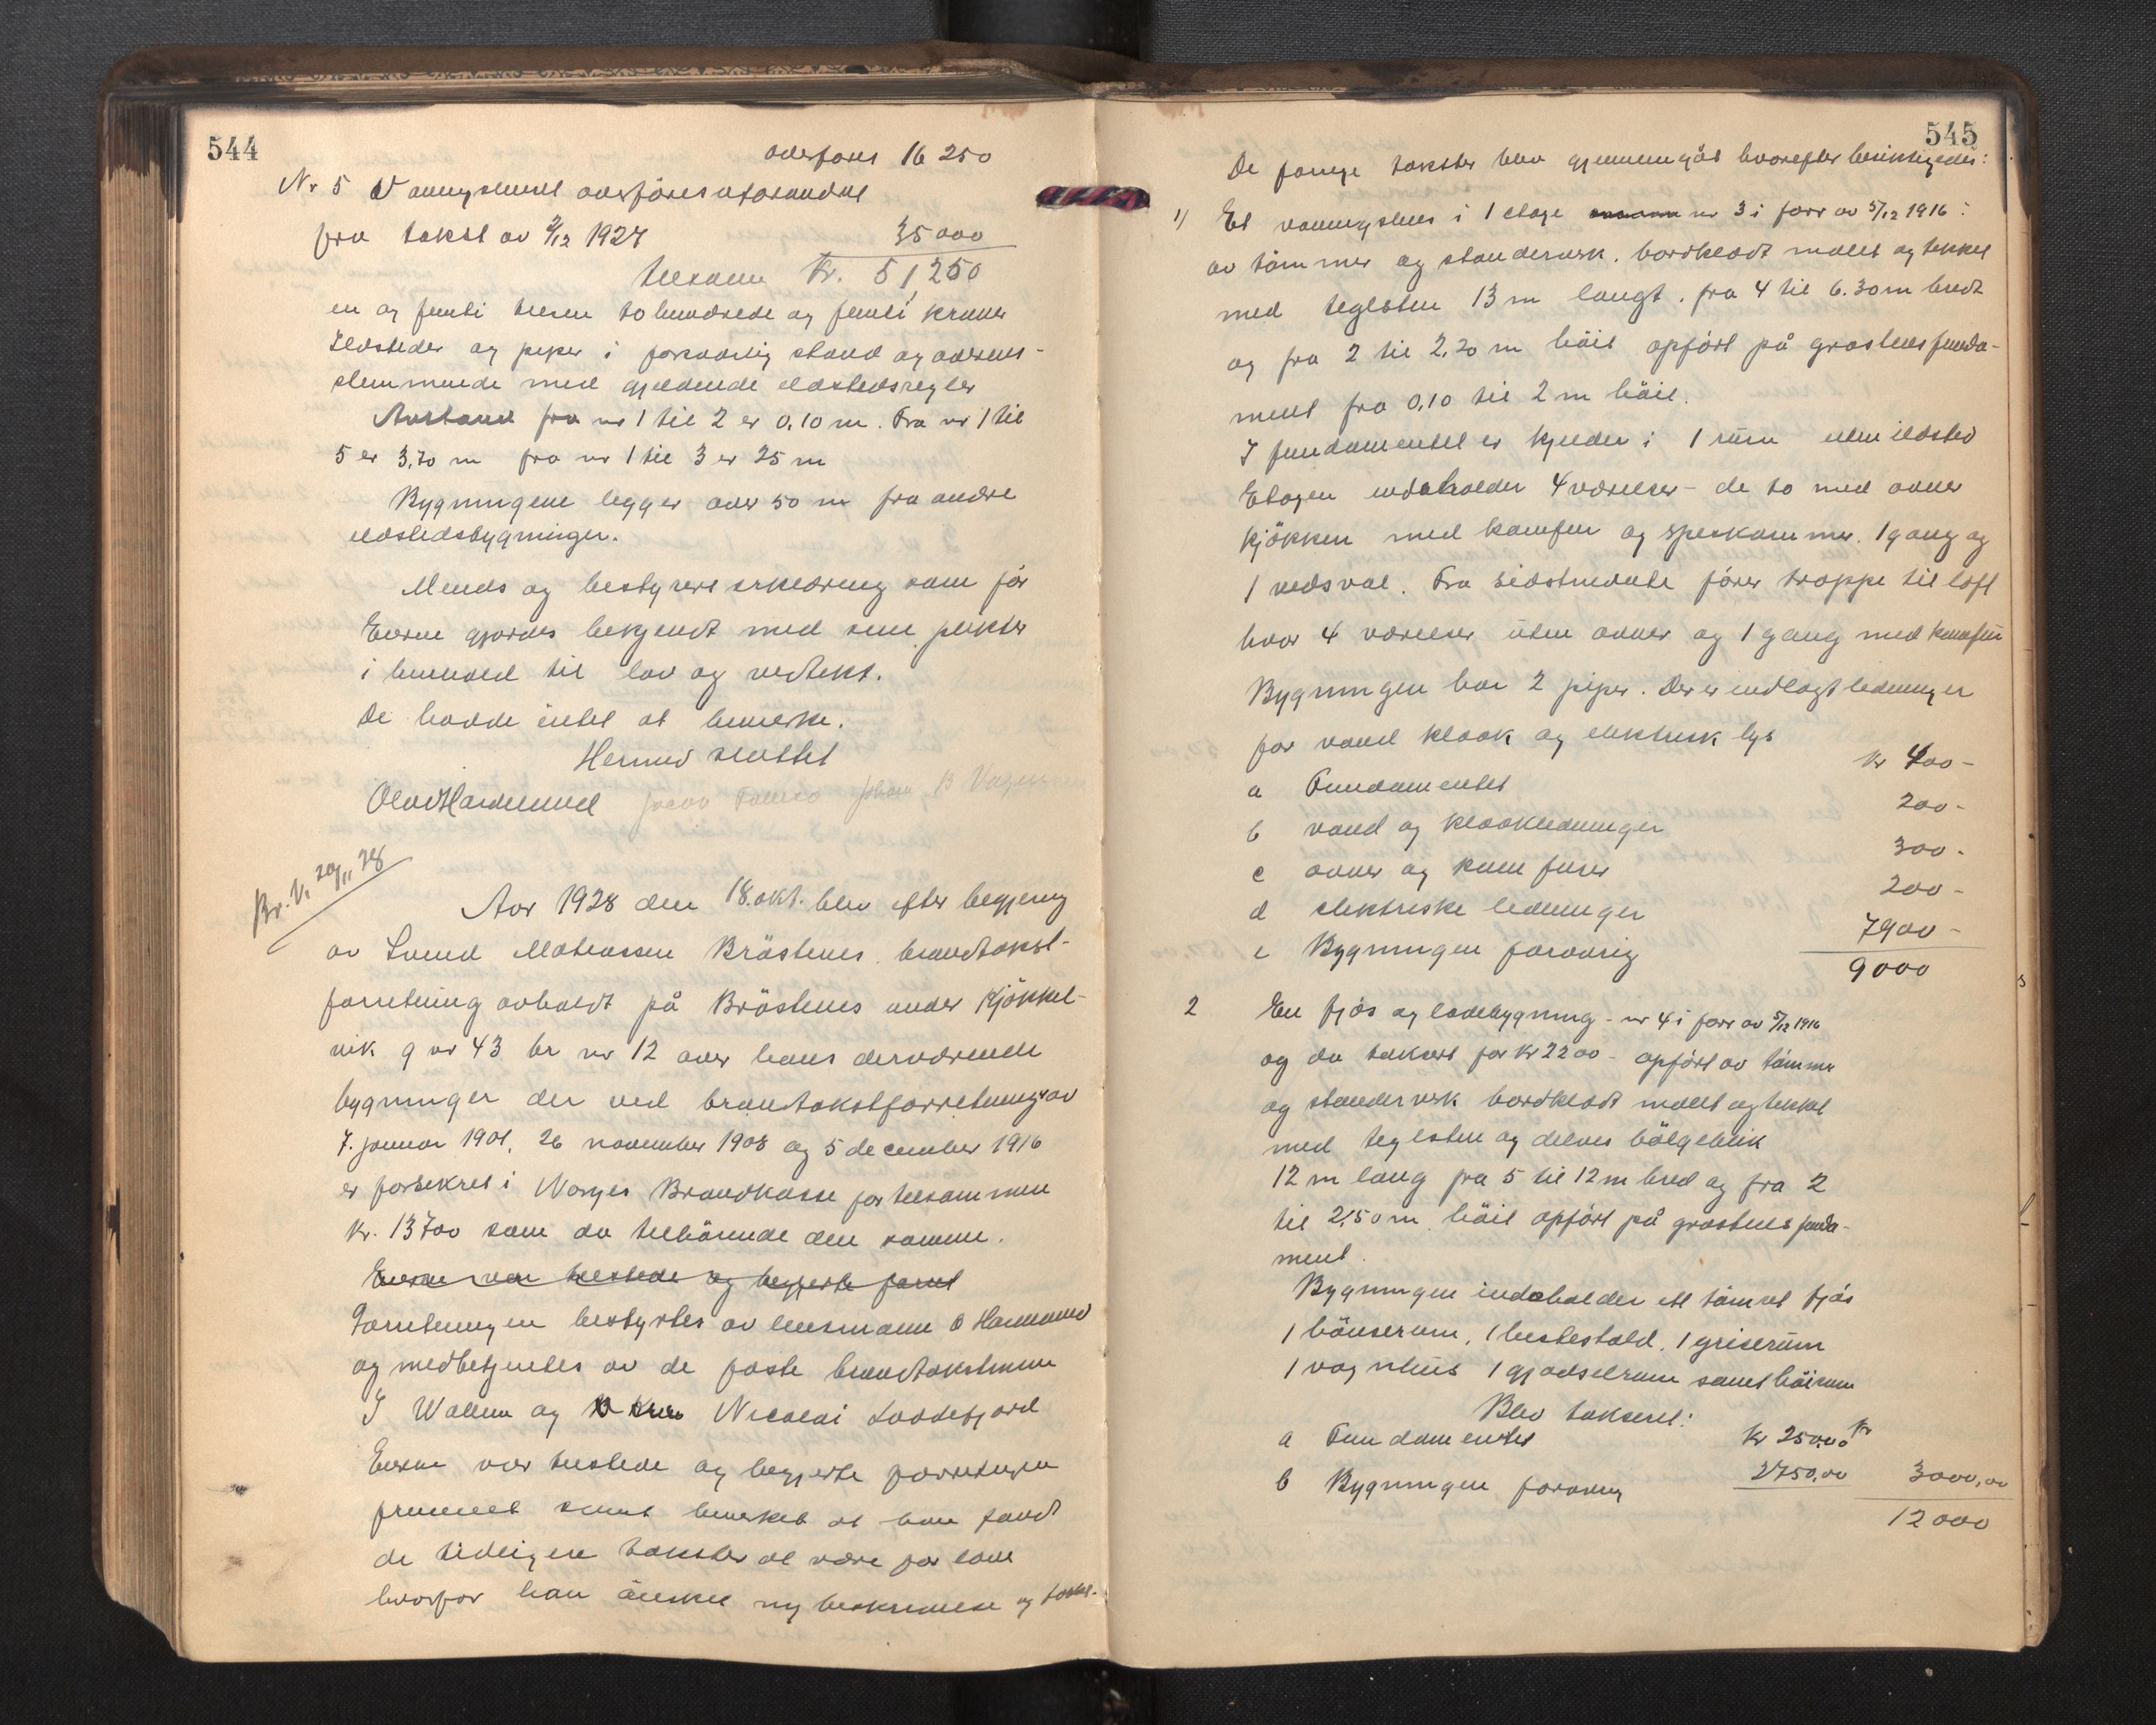 544
overføres 16 250
Nr 5 Vaaningshuset overføres uforandret
fra takst av 2/12 1924 35 000
tilsam Kr. 51,250
en og femti tusen to hundrede og femti kroner
Ildsteder og piper i forsvarlig stand og overens-
stemmende med gjeldende ildstedsregler
Avstand fra nr 1 til 2 er 0,10 m. Fra nr 1 til
5 er 3,70 m fra nr 1 til 3 er 25 m
Bygningene ligger over 50 m fra andre
ildstedsbygninger.
Mends og bestyrers erklæring som før
Eieren gjordes bekjendt med sine plikter
i henhold til lov og vedtekt.
De hadde intet at bemerke.
Hermed sluttet
Olav Hammund Johan B
Br. V. 29/11 28
Aar 1928 den 18. okt. blev efter begjering
av Mathiassen Bröstenes brandtakst-
forretning avholdt på Bröstenes under Kjökkel-
vik g nr 43 br nr 12 over hans derværende
bygninger der ved brantakstforretninger av
7. januar 1901, 26 november 1908 og 5 december 1916
er forsekret i Norges Brandkasse for tilsammen
kr. 13700 som da tilhörende den samme.
Eieren var tilstede og begjerte forret
Forretningen bestyrtes av lensmann O Hammund
og medbetjentes av de faste brandtakstmenn
J Wallem og Nicolai Loddefjord
Eieren var tilstede og begjerte forretningen
fremmet samt bemerket at han fandt
de tidligere takster at være for lave
hvorfor han önsket ny beskrivelse og takst.
545
De forrige takster blev gjennemgåt hvorefter besiktigedes:
1) Et vaaningshus i 1 etage nr 3 i forr av 5/12 1916:
av tömmer og standerverk, bordklædt malet og tekket
med teglsten 13 m langt, fra 4 til 6.30 m bredt
og fra 2 til 2,20 m höit opfört på grastensfunda-
ment fra 0,10 til 2 m höit.
I fundamentet er kjelder i 1 rum uten ildsted
Etagen indeholder 4 værelser - de to med ovner
kjökken med komfur og spiskammer. 1 gang og
1 vedsval. Fra sidstnevnte fører trappe til loft
hvor 4 værelser uten ovner og 1 gang med komfur
Bygningen har 2 piper. Der er indlagt ledninger
for vand kloak og elektrisk lys
a Fundamentet kr 400 -
b vand og kloakledninger 200 -
c ovner og komfurer 300 -
d elektriske ledninger 200 -
e Bygningen forövrig 7900 -
9000
2 En fjös og ladebygning - nr 4 i forr av 5/12 1916
og da taksert for kr 2200 - opfört av tömmer
og standerverk bordklædt malet og tekket
med teglsten og delvis bölgeblik
12 m lang fra 5 til 12 m bred og fra 2
til 2,50 m höit opfört på grastens funda-
ment.
Bygningen indeholder ett tömret fjös
1 hönserum, 1 hestestald, 1 griserum
1 vognhus 1 gjødselrum samt höirum
Blev taksert:
a Fundamentet kr 250,00 Kr
b Bygningen forövrig 2750,00 3000,00
12000